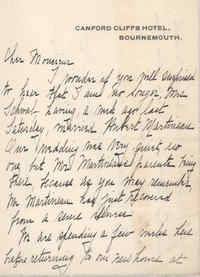 CANFORD CLIFFS HOTEL,
BOURNEMOUTH.
Cher Monsieur
I wonder if you will surprised
to hear that I am no longer Mrs
Schwab having a week ago last
Saturday, married Herbert Martineau
Our wedding was very quiet no
one but Mrs Martineau's parents being
there because as you may remember
Mr Martineau has just recovered
from a severe illness
We are spending a few weeks here
before returning to our new house at